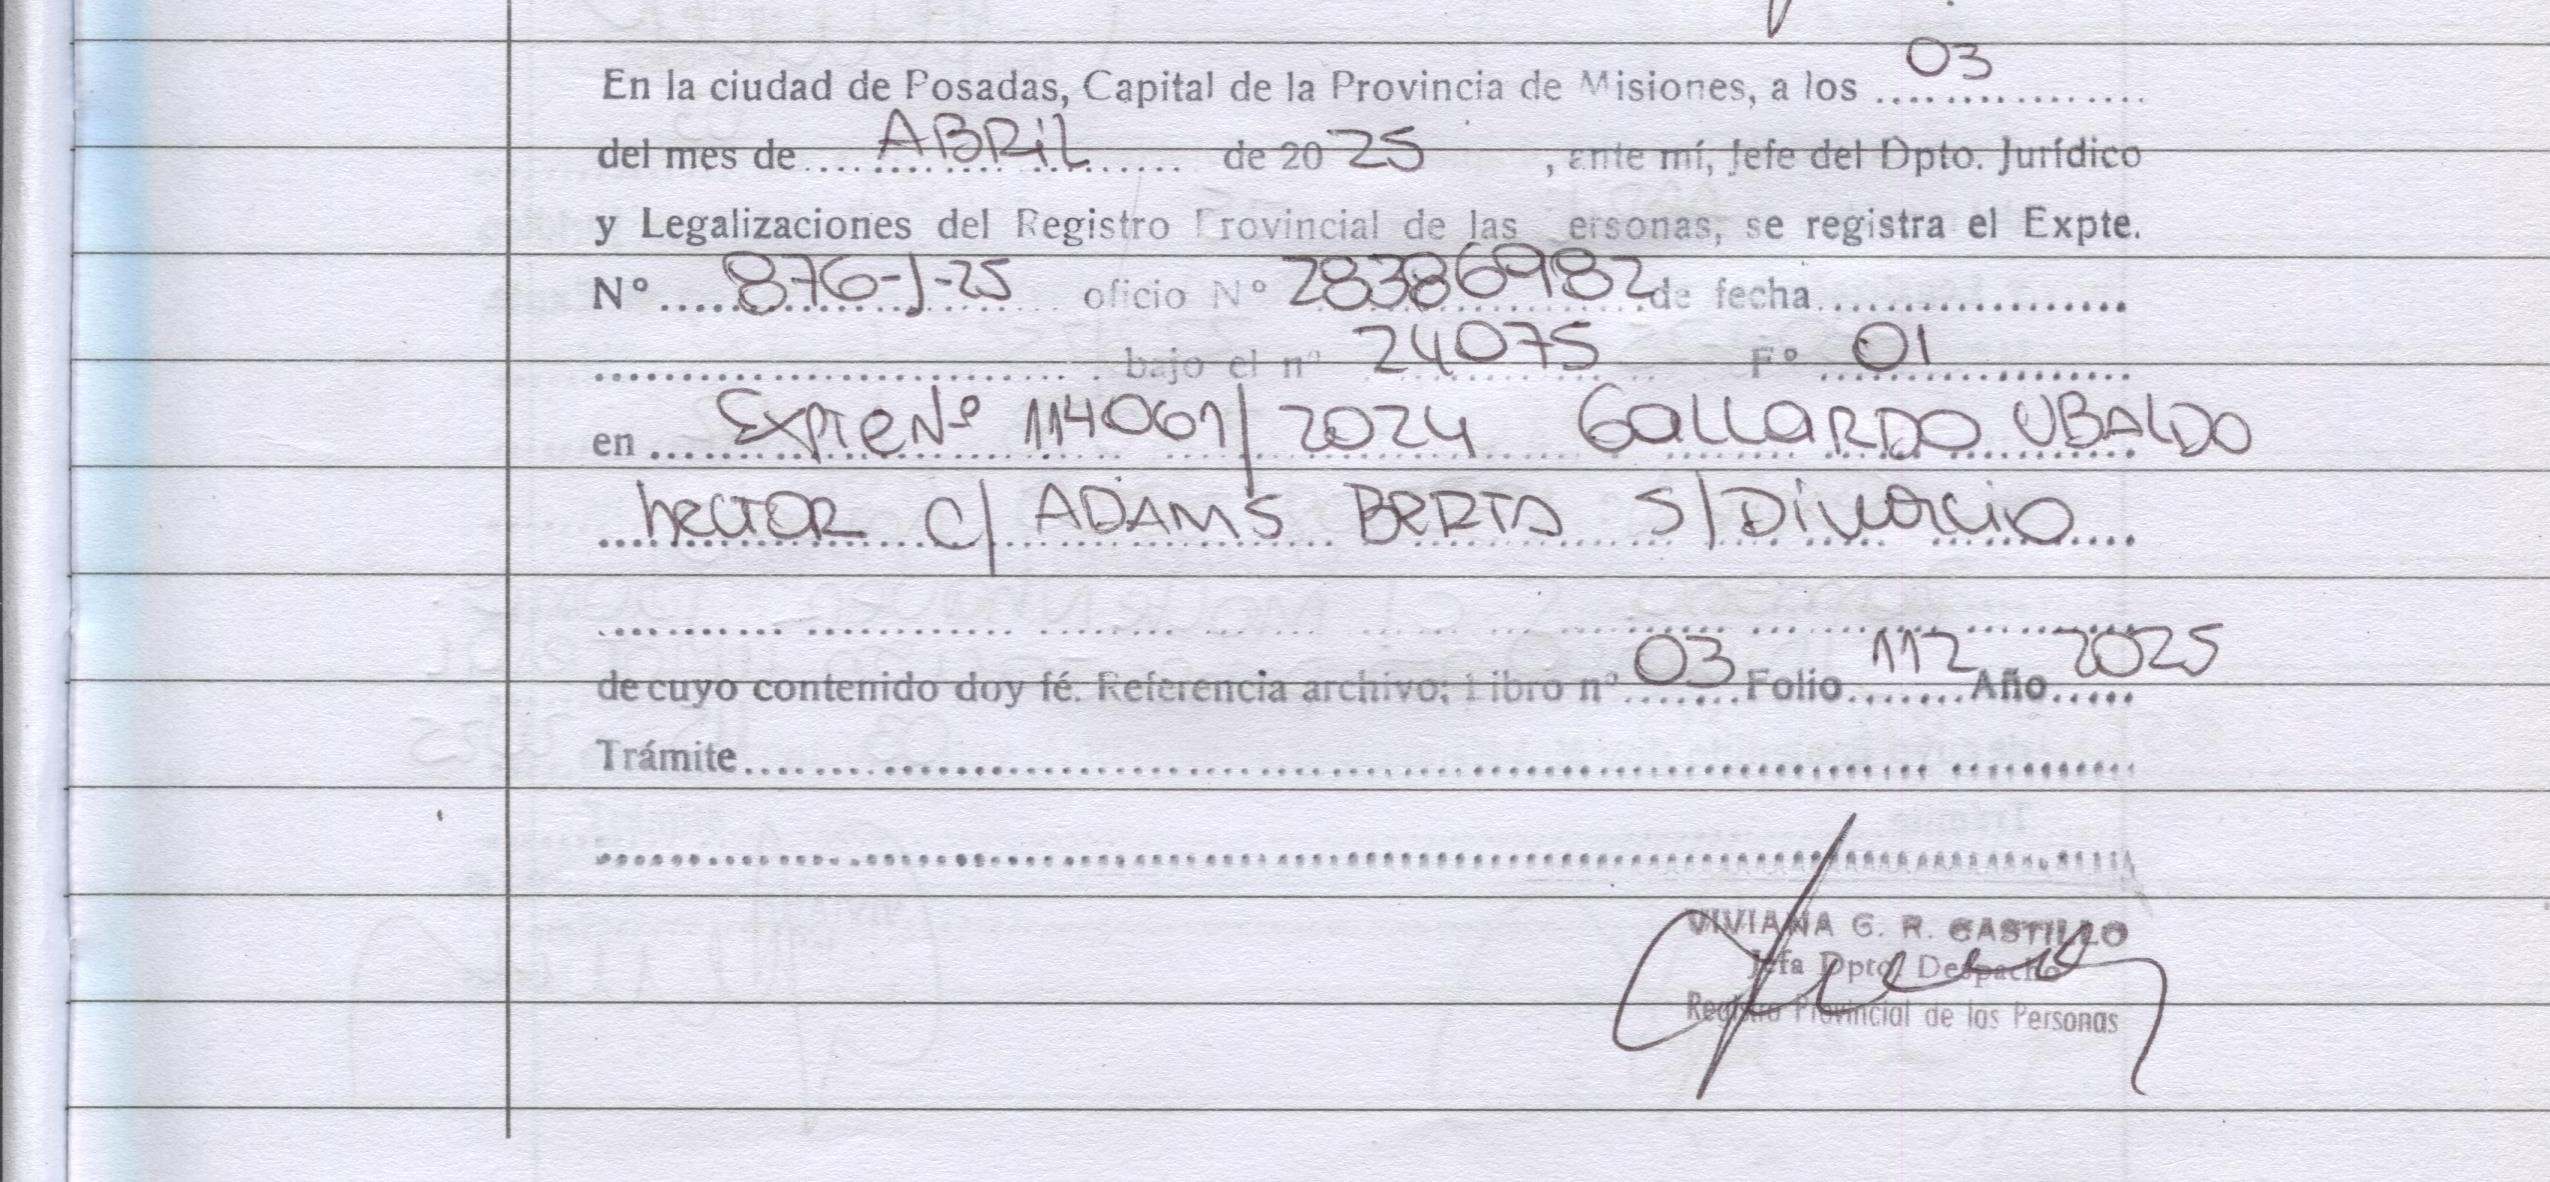 En la ciudad de Posadas, Capital de la Provincia de Misiones, a los 03
del mes de ABRiL de 2025, ante mí, Jefe del Dpto. Jurídico
y Legalizaciones del Registro Provincial de las ersonas, se registra el Expte.
Nº 876-J-25 oficio Nº 28386982 de fecha
bajo el nº 24075 Fº 01
en ExpteNº 114061/2024 GALLARDO UBALDO
hecTOR c/ ADAMS BERTA S/Divorcio
de cuyo contenido doy fé. Referencia archivo; Libro nº 03 Folio 112 Año 2025
Trámite
VIVIANA G. R. CASTILLO
Jefa Dpto. Despacho
Registro Provincial de las Personas